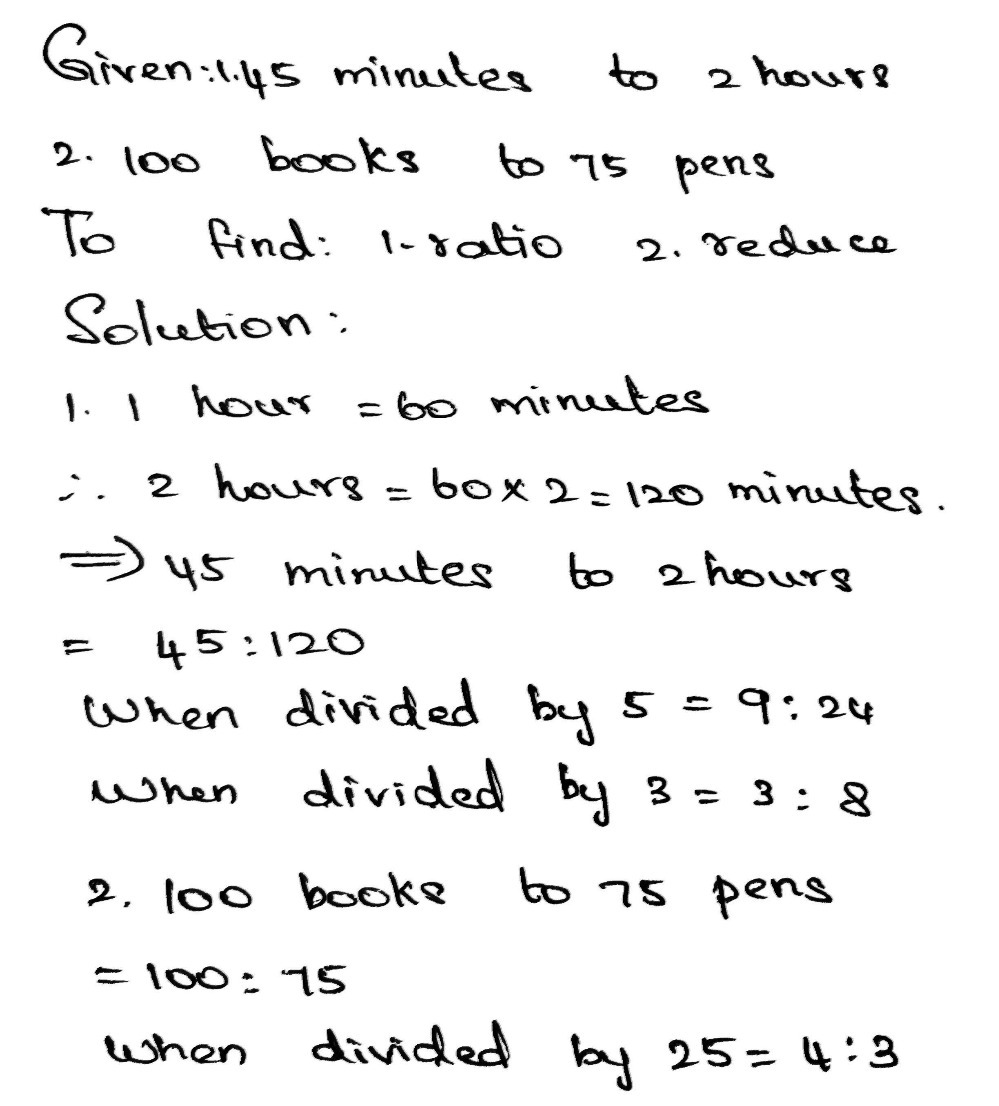 Given:1.45 minutes to 2 hours
2. 100 books to 75 pens
To find: 1-ratio 2. reduce
Solution:
1. 1 hour = 60 minutes
∴ 2 hours = 60 x 2 = 120 minutes.
⇒ 45 minutes to 2 hours
= 45:120
When divided by 5 = 9:24
When divided by 3 = 3:8
2. 100 books to 75 pens
= 100:75
When divided by 25 = 4:3